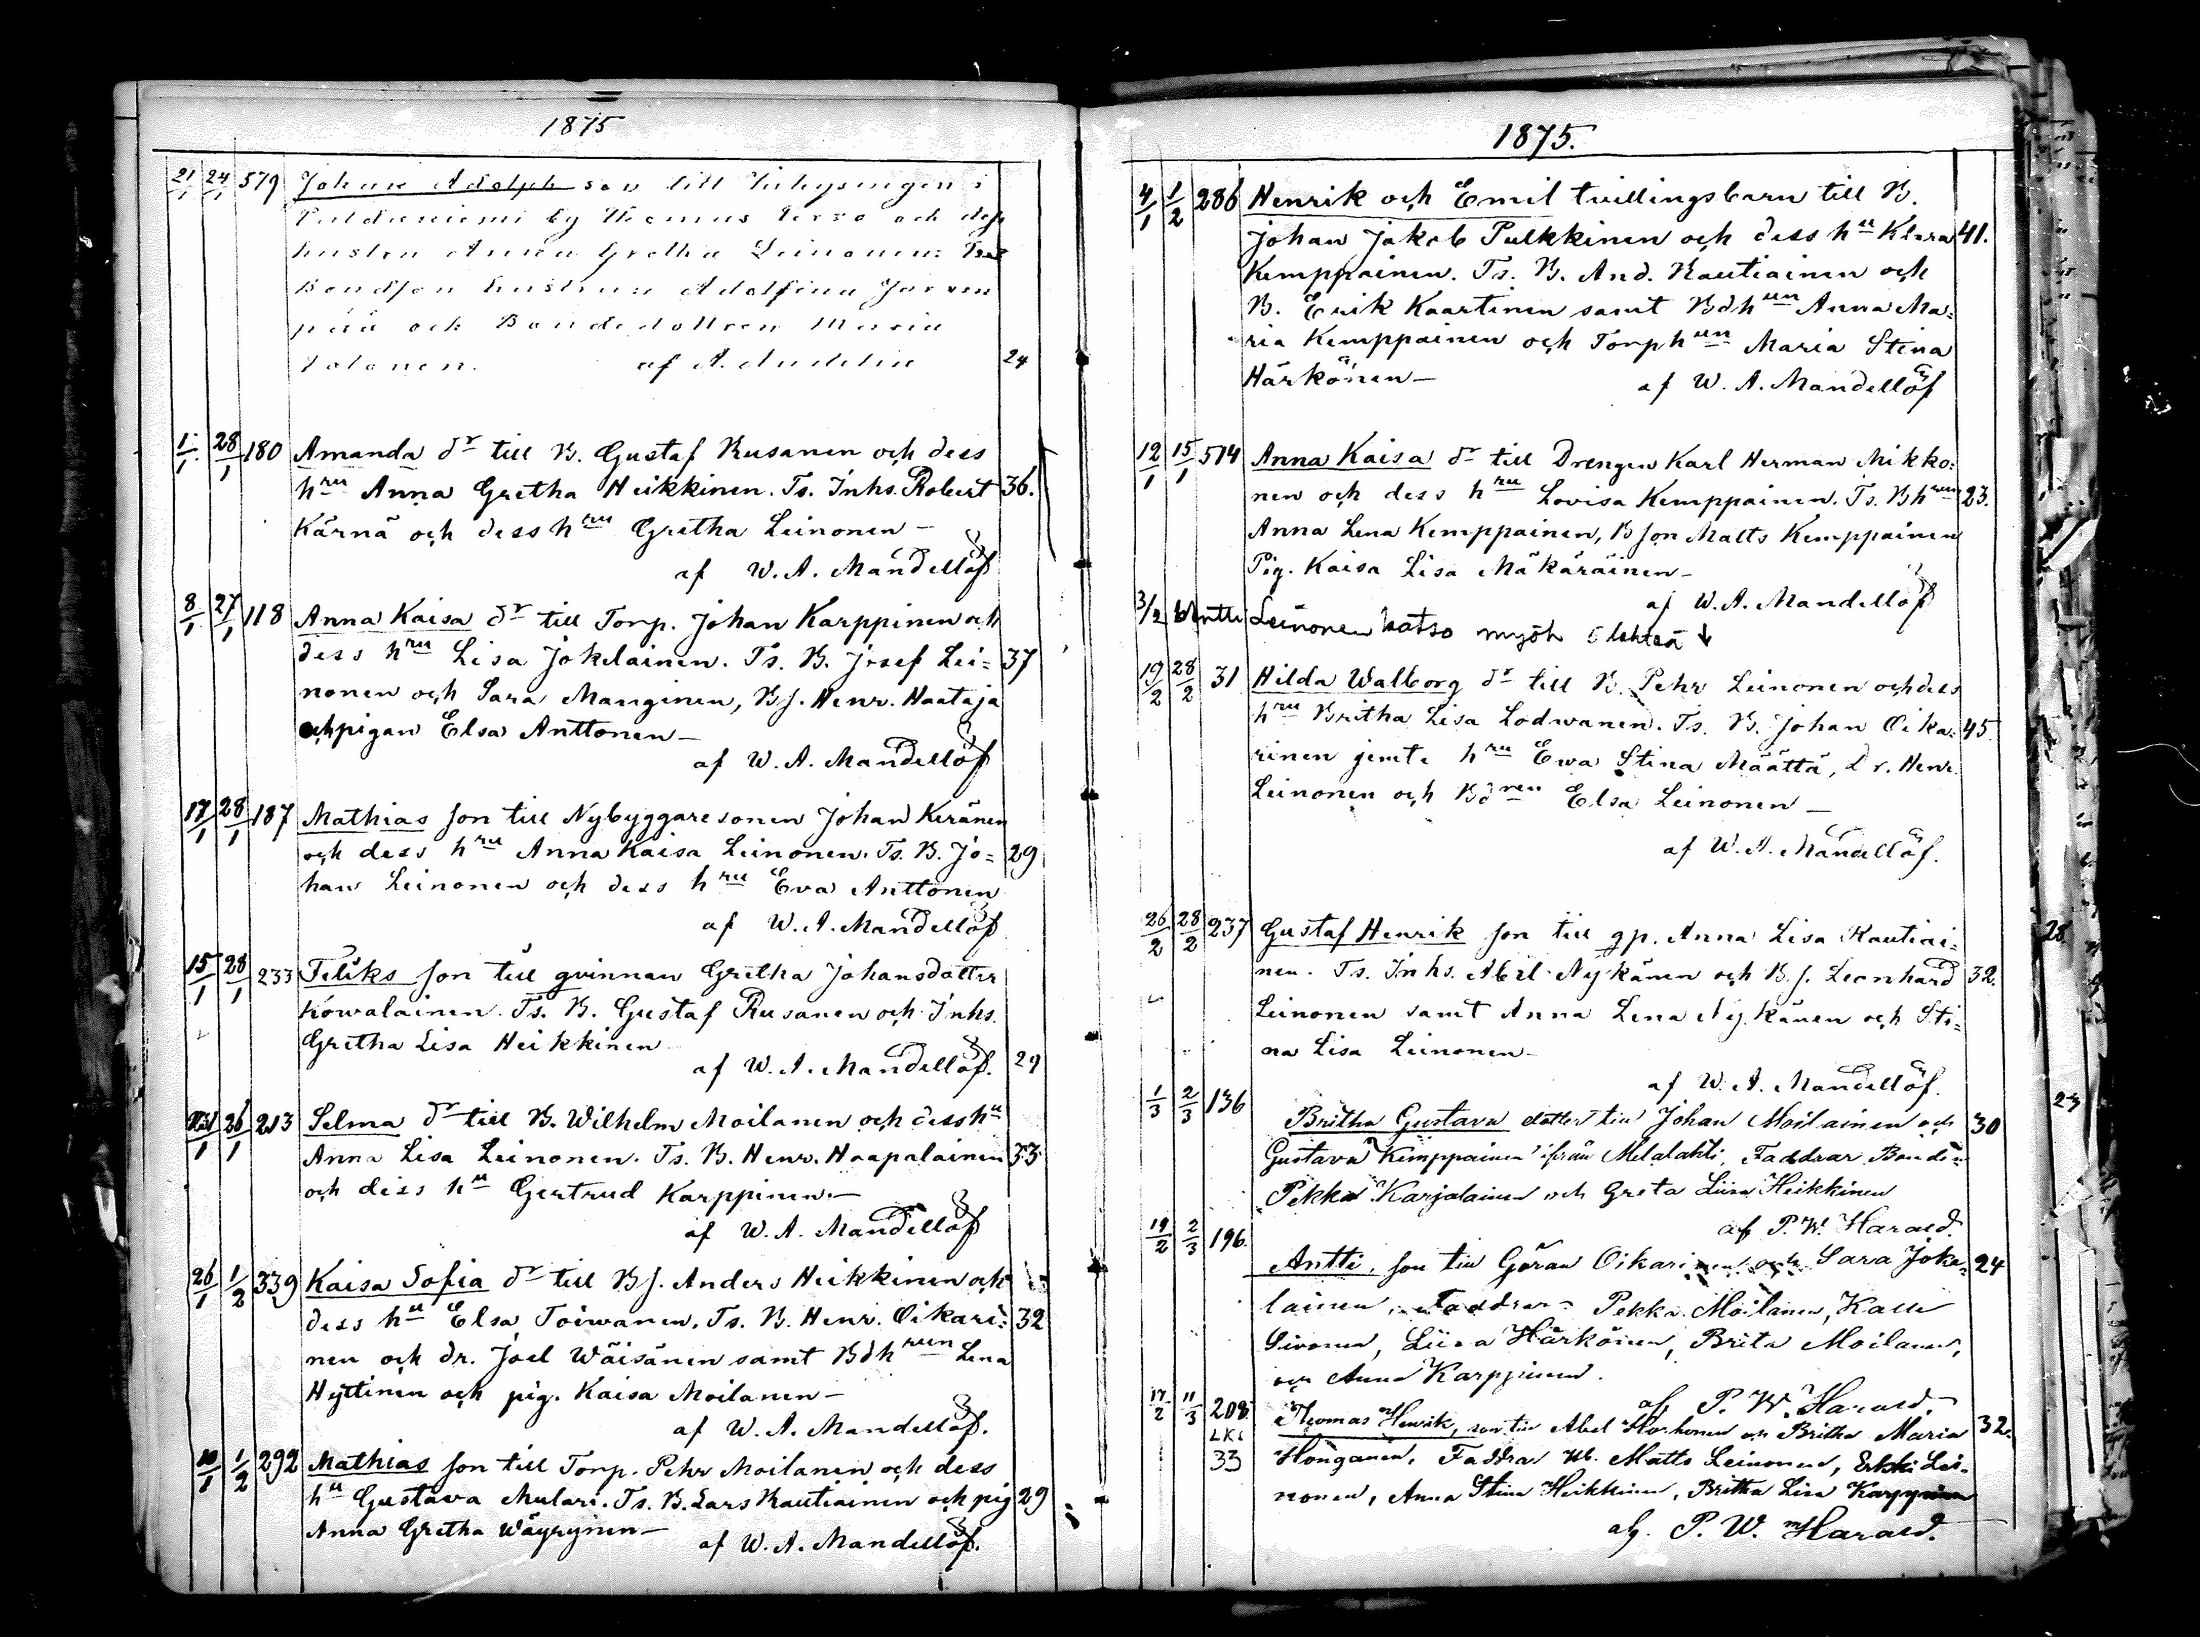 1875
21/1 24/1 579 Johan Adolph son till Inhysingen i
by Thomas och dess
hustru Anna Gretha Leinonen: Ts
Bondson hustrun Adolfina Jarven
pää och Bondedottren Maria
Tolonen. af A. 24
1/1 28/1 180 Amanda dr till B. Gustaf Rusanen och dess
hru Anna Gretha Heikkinen. Ts. Inhs. Robert 36.
Kärnä och dess hru Gretha Leinonen –
af W. A. Mandellöf
8/1 27/1 118 Anna Kaisa dr till Torp. Johan Karppinen och
dess hru Lisa Jokelainen. Ts. B. Josef Lei= 37
nonen och Sara Manginen, Bs. Henr. Haataja
och pigan Elsa Anttonen –
af W. A. Mandellöf
17/1 28/1 187 Mathias son till Nybyggaresonen Johan Keränen
och dess hru Anna Kaisa Leinonen. Ts. B. Jo= 29
han Leinonen och dess hru Eva Anttonen
af W. A. Mandellöf
15/1 28/1 233 Feliks son till qvinnan Gretha Johansdotter
Kowalainen. Ts. B. Gustaf Rusanen och Inhs.
Gretha Lisa Heikkinen
af W. A. Mandellöf. 29
26/1 213 Selma dr till B. Wilhelm Moilanen och dess hu
Anna Lisa Leinonen. Ts. B. Henr. Haapalainen 33
och dess hu Gertrud Karppinen. –
af W. A. Mandellöf
26/1 1/2 339 Kaisa Sofia dr till Bs. Anders Heikkinen och
dess hu Elsa Toiwanen. Ts. B. Henr. Oikari= 32
nen och dr. Joel Wäisänen samt Bdhrun Lena
Hyttinen och pig. Kaisa Moilanen –
af W. A. Mandellöf.
10/1 1/2 292 Mathias son till Torp. Pehr Moilanen och dess
hu Gustava Mulari. Ts. B. Lars Rautiainen och pig 29
Anna Gretha Wäyrynen –
af W. A. Mandellöf.
1875.
4/1 1/2 286 Henrik och Emil tvillingsbarn till B.
Johan Jakob Pulkkinen och dess hu Klara 41.
Kemppainen. Ts. B. And. Rautiainen och
B. Erik Kaartinen samt Bdhun Anna Ma=
ria Kemppainen och Torphun Maria Stina
Härkönen – af W. A. Mandellöf
12/1 15/1 514 Anna Kaisa dr till Drengen Karl Herman Mikko:
nen och dess hru Lovisa Kemppainen. Ts. Bhrun 23.
Anna Lena Kemppainen, Bson Matts Kemppainen
Pig. Kaisa Lisa Mäkäräinen –
af W. A. Mandellöf
3/2 Antti Leinonen katso myöh 6 lehteä ↓
19/2 28/2 31 Hilda Walborg dr till B. Pehr Leinonen och dess
hru Britha Lisa Lodwanen. Ts. B. Johan Oika= 45.
rinen jemte hru Ewa Stina Määttä, Dr. Henr.
Leinonen och Elsa Leinonen –
af W. A. Mandellöf.
26/2 28/2 237 Gustaf Henrik son till qp. Anna Lisa Rautiai=
nen. Ts. Inhs. Abel Nykänen och B.s. Leonhard 32.
Leinonen samt Anna Lena Nykänen och Sti=
na Lisa Leinonen –
af W. A. Mandellöf.
1/3 2/3 136 Britha Gustava dotter till Johan Moilainen och 30
Gustava Kemppainen ifrån Melalahti, Faddrar Bonden
Pekka Karjalainen och Greta Liisa Heikkinen
af P. W. Harald.
19/2 2/3 196. Antti, son till Göran Oikarinen och Sara Joke= 24
lainen, Faddrar = Pekka Moilanen, Kalle
Sivonen, Liisa Härkönen, Brita Moilanen,
och Anna Karppinen.
af P. W. Harald.
17/2 11/3 208. Thomas Henrik, son till Abel Horkonen och Britha Maria 32.
LKS
33 Honganen, Faddrar Matts Leinonen, Erkki Lei=
nonen, Anna Stina Heikkinen, Britha Lisa Karppinen
af. P. W. Harald.
28
23